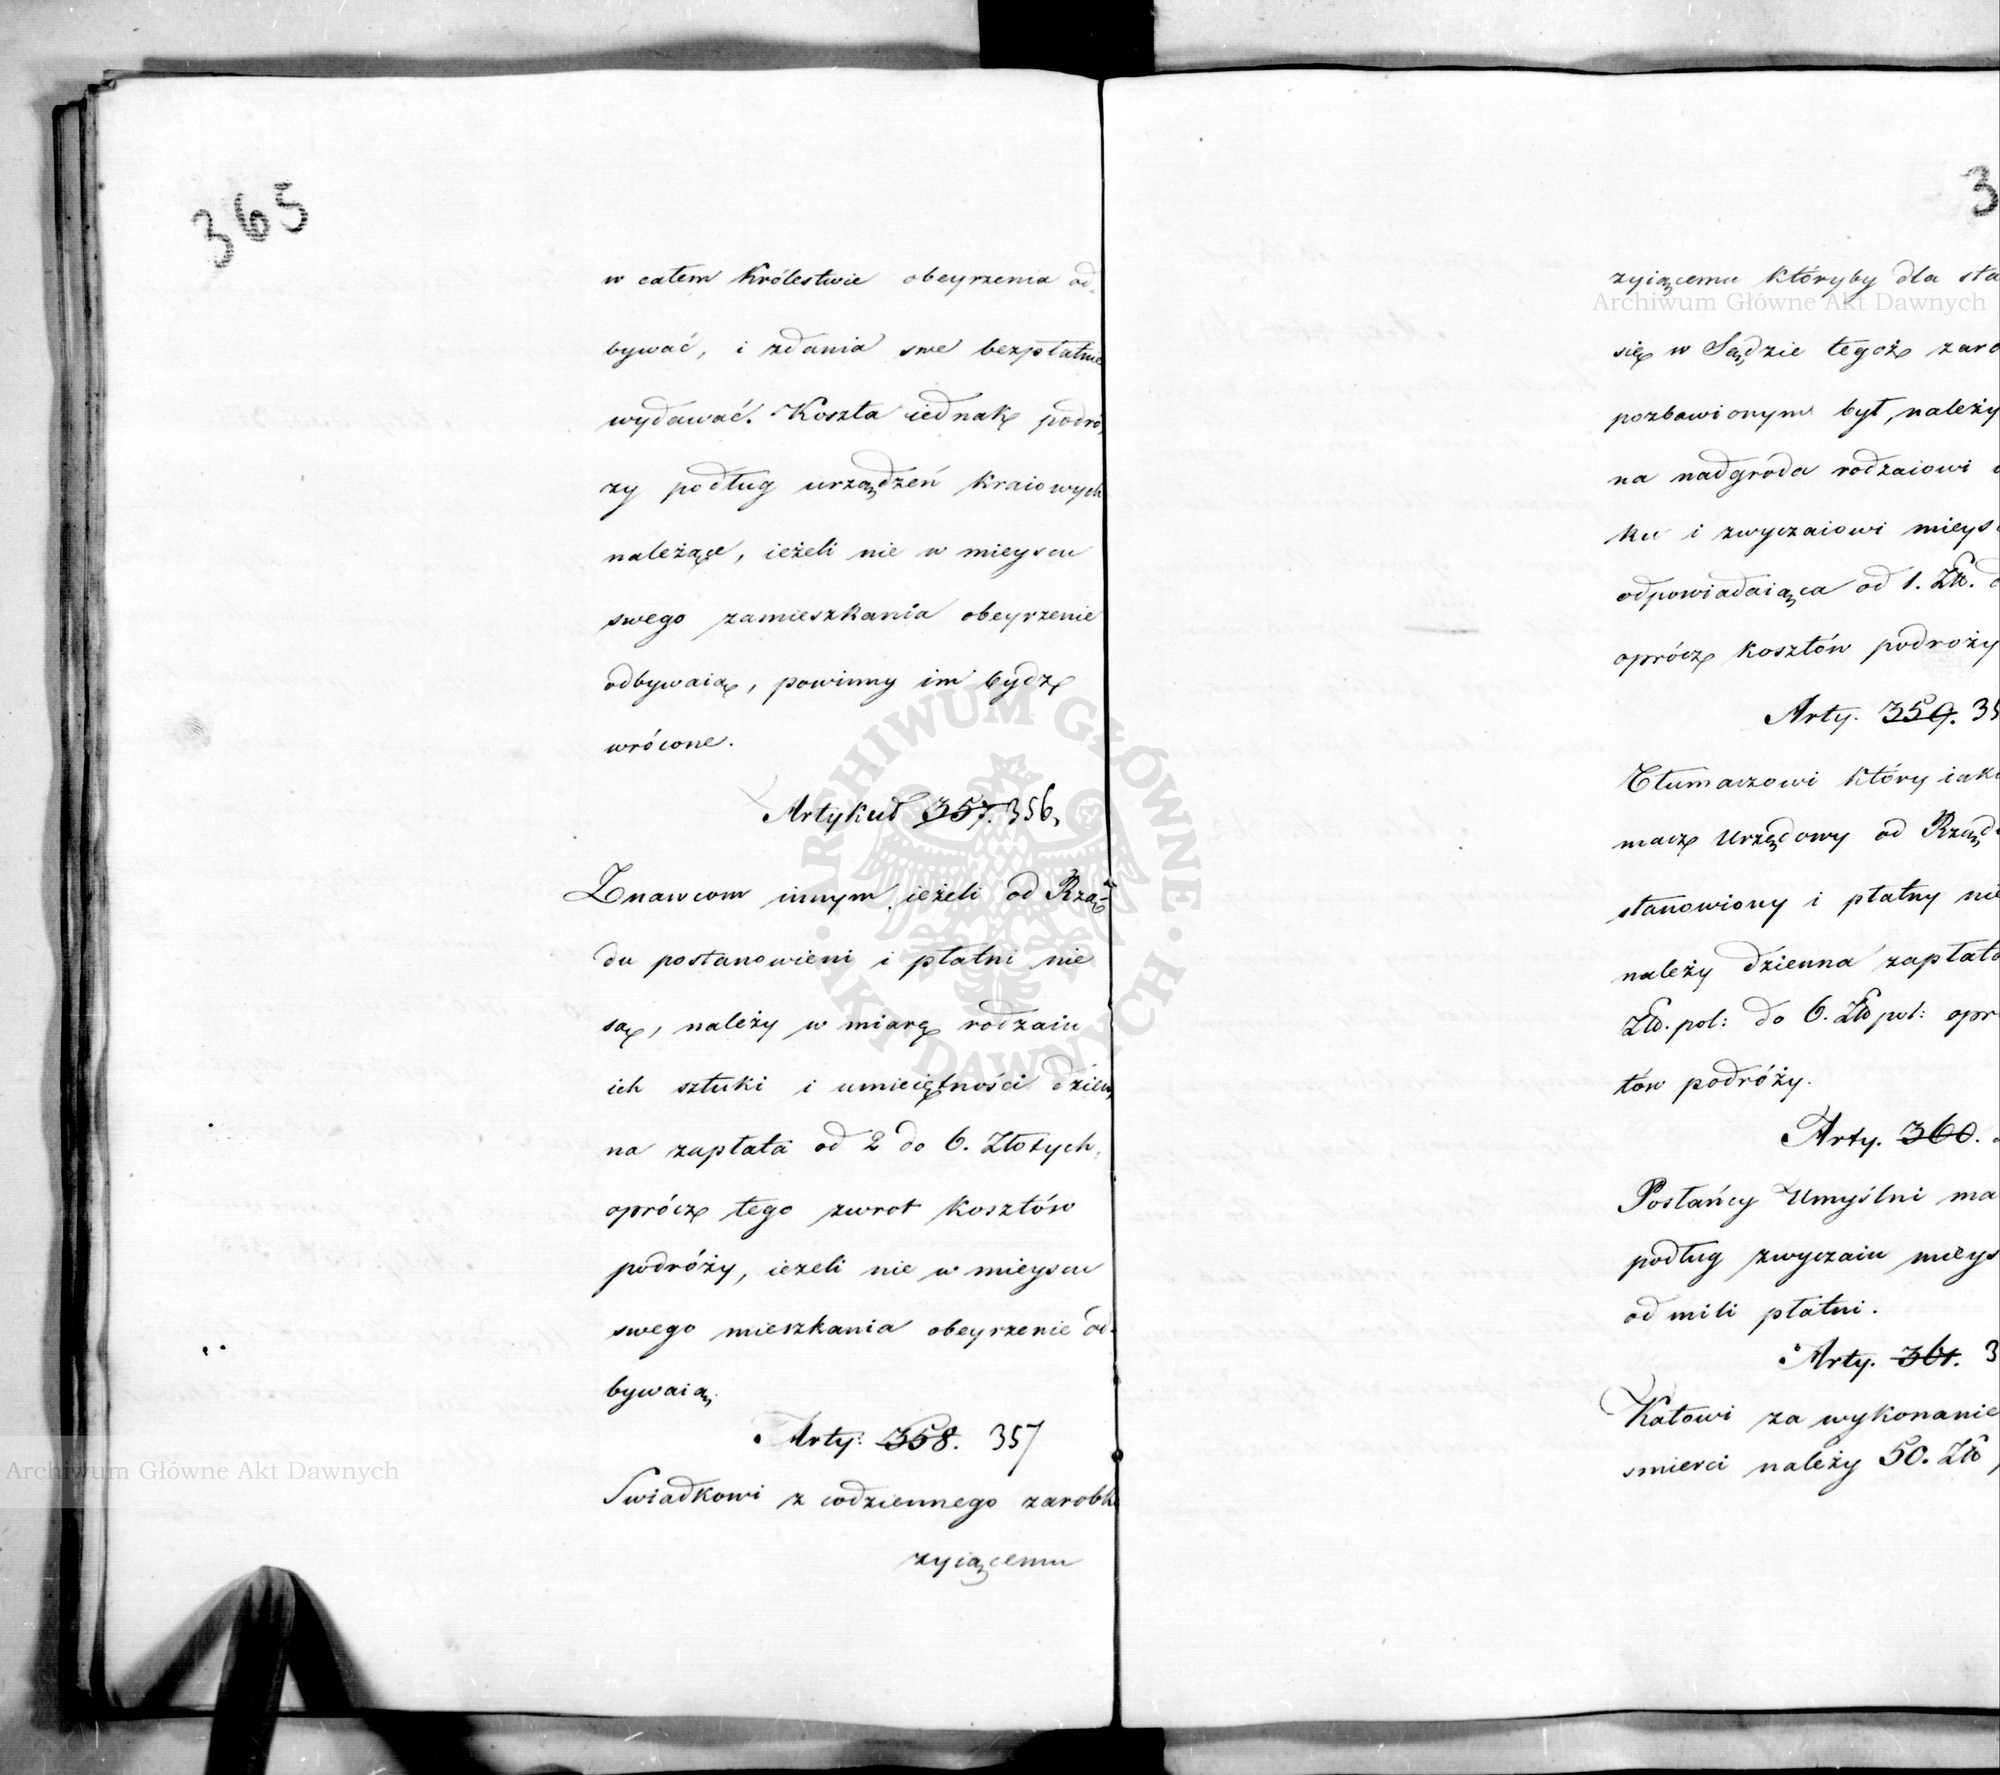 365
w całem Królestwie obeyrzenia od-
bywać, i zdania swe bezpłatnie
wydawać. Koszta iednak podró-
zy podług urządzeń kraiowych
należące, ieżeli nie w mieyscu
swego zamieszkania obeyrzenie
odbywaią, powinny im bydz
wrócone.
Artykuł 357. 356.
Znawcom innym ieżeli od Rzą-
du postanowieni i płatni nie
są, należy w miarę rodzaiu
ich sztuki i umieiętności dzien-
na zapłata od 2 do 6. Złotych,
oprócz tego zwrot kosztów
podróży, ieżeli nie w mieyscu
swego mieszkania obeyrzenie od-
bywaią.
Arty: 358. 357
Swiadkowi z codziennego zarobk
zyiącemu
3
zyiącemu któryby dla sta
się w Sądzie tegoż zaro
pozbawionym był, należy
na nadgroda rodzaiowi
ku i zwyczaiowi mieys
odpowiadaiąca od 1. Zło. d
oprócz kosztów podroży
Arty. 359. 35
Tłumaczowi który iako
macz Urzędowy od Rządu
stanowiony i płatny nie
należy dzienna zapłata
Zło. pol: do 6. Zło pol: opr
tów podróży.
Arty. 360.
Posłańcy Umyślni ma
podług zwyczaiu mieys
od mili płatni.
Arty. 361. 3
Katowi za wykonanie
smierci należy 50. Zło
Archiwum Główne Akt Dawnych
Archiwum Główne Akt Dawnych
ARCHIWUM GŁÓWNE · AKT DAWNYCH ·